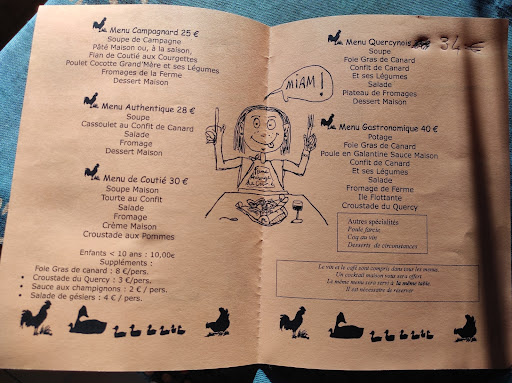 Menu Campagnard 25 €
Soupe de Campagne
Pâté Maison ou, à la saison,
Flan de Coutié aux Courgettes
Poulet Cocotte Grand'Mère et ses Légumes
Fromages de la Ferme
Dessert Maison
Menu Authentique 28 €
Soupe
Cassoulet au Confit de Canard
Salade
Fromage
Dessert Maison
Menu de Coutié 30 €
Soupe Maison
Tourte au Confit
Salade
Fromage
Crème Maison
Croustade aux Pommes
Enfants < 10 ans : 10,00€
Suppléments :
Foie Gras de canard : 8 €/pers.
• Croustade du Quercy : 3 € / pers.
• Sauce aux champignons : 2 € / pers.
• Salade de gésiers : 4 € / pers.
MIAM!
Menu Quercynois 34 €
Soupe
Foie Gras de Canard
Confit de Canard
Et ses Légumes
Salade
Plateau de Fromages
Dessert Maison
Menu Gastronomique 40 €
Potage
Foie Gras de Canard
Poule en Galantine Sauce Maison
Confit de Canard
Et ses Légumes
Salade
Fromage de Ferme
Ile Flottante
Croustade du Quercy
Autres spécialités
Poule farcie
Coq au vin
Desserts de circonstances
Le vin et le café sont compris dans tous les menus.
Un cocktail maison vous sera offert.
Le même menu sera servi à la même table.
Il est nécessaire de réserver